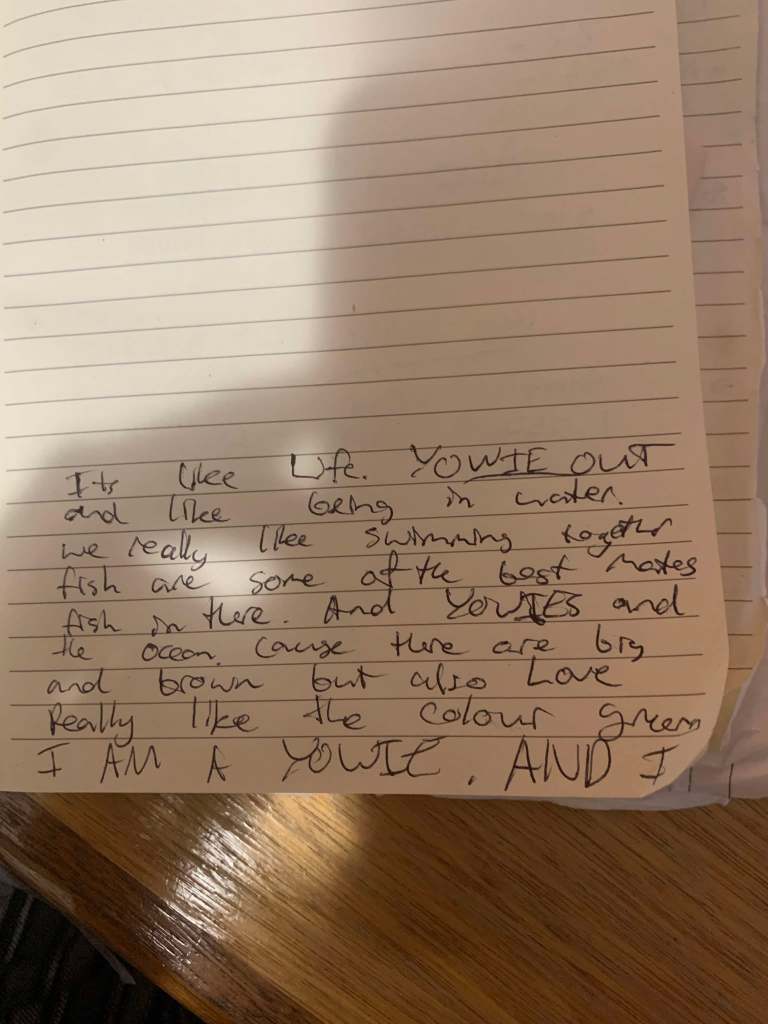 Its like Life. YOWIE OUT
and like being in water.
we really like swimming together
fish are some of the best mates
fish in there. And YOWIES and
the ocean. Cause there are big
and brown but also Love
Really like the colour green
I AM A YOWIE. AND I